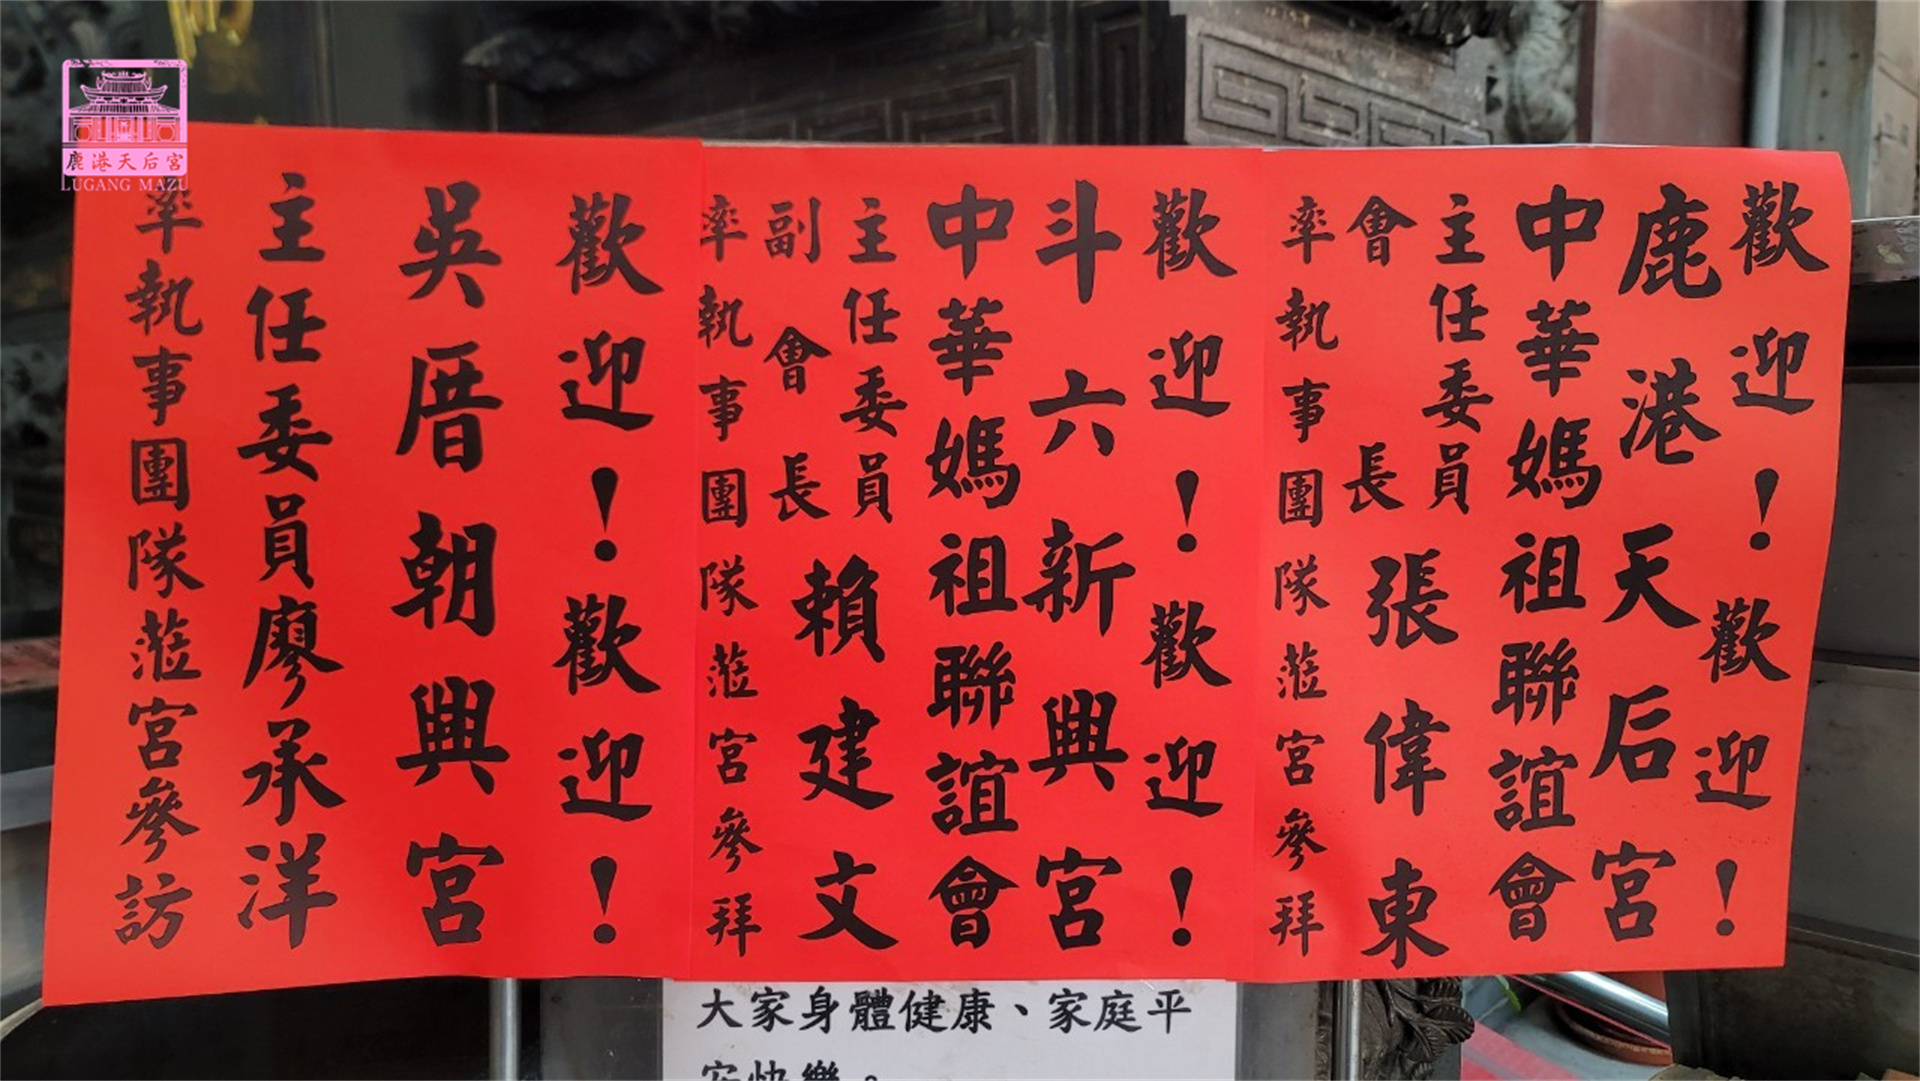 鹿港天后宮
LUGANG MAZU
歡迎！歡迎！
鹿港天后宮
中華媽祖聯誼會
主任委員
會長張偉東
率執事團隊蒞宮參拜
歡迎！歡迎！
斗六新興宮
中華媽祖聯誼會
主任委員
副會長賴建文
率執事團隊蒞宮參拜
歡迎！歡迎！
吳厝朝興宮
主任委員廖承洋
率執事團隊蒞宮參訪
大家身體健康、家庭平
安快樂。